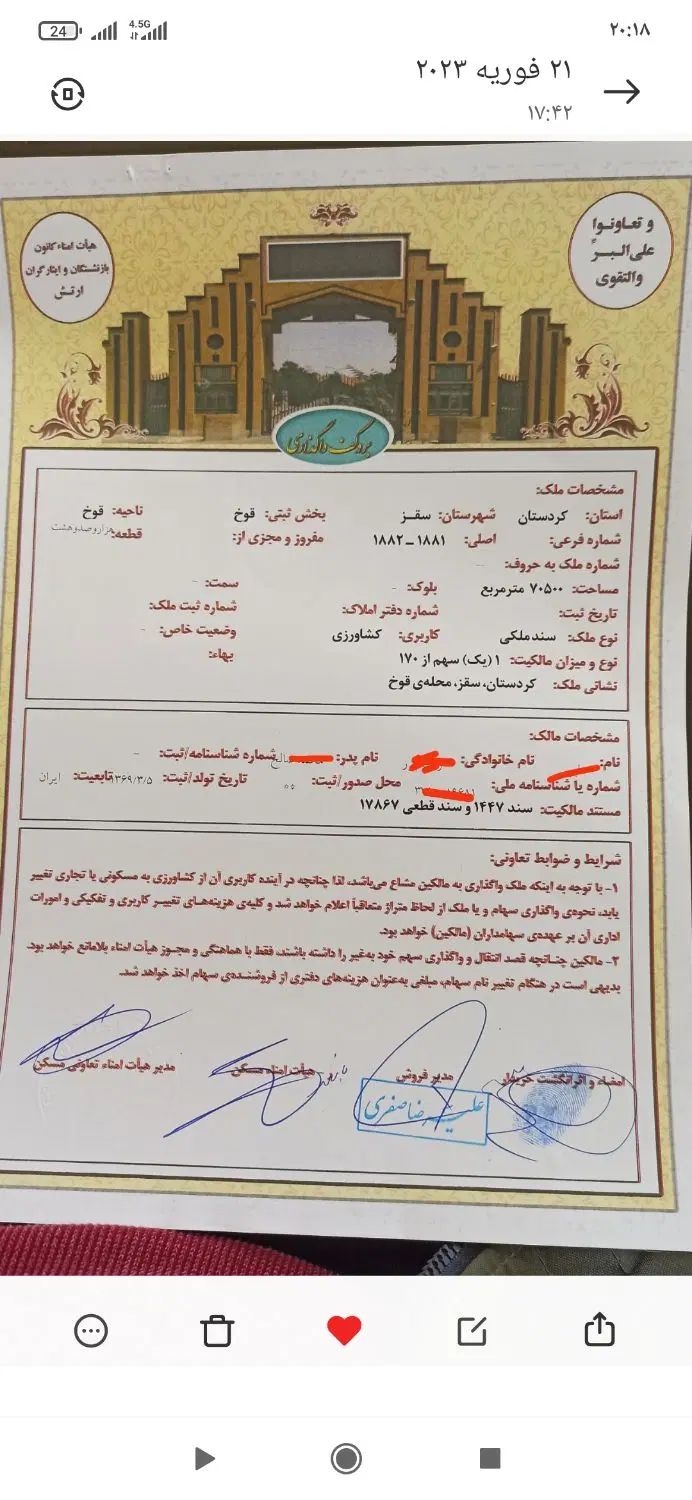 24
4.5G
۲۰:۱۸
۲۱ فوریه ۲۰۲۳
۱۷:۴۲
و تعاونـوا
علی‌البـرّ
والتقوی
هیأت امناء کانون
بازنشستگان و ایثارگران
ارتـش
برگ واگذاری
مشخصات ملک:
استان: کردستان شهرستان: سقـز بخش ثبتی: قوخ ناحیه: قوخ
شماره فرعی: اصلی: ۱۸۸۱ – ۱۸۸۲ مفروز و مجزی از: قطعه: هزاروصدوهشت
شماره ملک به حروف: --
مساحت: ۷۰۵۰۰ مترمربع بلوک: - سمت: -
تاریخ ثبت: شماره دفتر املاک: شماره ثبت ملک:
نوع ملک: سندملکی کاربری: کشاورزی وضعیت خاص: -
نوع و میزان مالکیت: ۱ (یک) سهم از ۱۷۰ بهاء:
نشانی ملک: کردستان، سقز، محله‌ی قوخ
مشخصات مالک:
نام: نام خانوادگی: نام پدر: شماره شناسنامه/ثبت: -
شماره یا شناسنامه ملی: محل صدور/ثبت: ** تاریخ تولد/ثبت: ۱۳۶۹/۳/۵ تابعیت: ایران
مستند مالکیت: سند ۱۴۴۷ و سند قطعی ۱۷۸۶۷
شرایط و ضوابط تعاونی:
۱- با توجه به اینکه ملک واگذاری به مالکین مشاع می‌باشد، لذا چنانچه در آینده کاربری آن از کشاورزی به مسکونی یا تجاری تغییر
یابد، نحوه‌ی واگذاری سهام و یا ملک از لحاظ متراژ متعاقباً اعلام خواهد شد و کلیه‌ی هزینه‌هـای تغییـر کاربری و تفکیکی و امورات
اداری آن بر عهده‌ی سهامداران (مالکین) خواهد بود.
۲- مالکین چنـانچه قصد انتقال و واگذاری سهم خود به‌غیر را داشته باشند، فقط با هماهنگی و مجـوز هیأت امناء بلامانع خواهد بود.
بدیهی است در هنگام تغییر نام سهام، مبلغی به‌عنوان هزینه‌های دفتری از فروشنده‌ی سهام اخذ خواهد شد.
امضاء و اثرانگشت خریدار
مدیر فروش
هیأت امناء مسکن
مدیر هیأت امناء تعاونی مسکن
علیرضا صفری